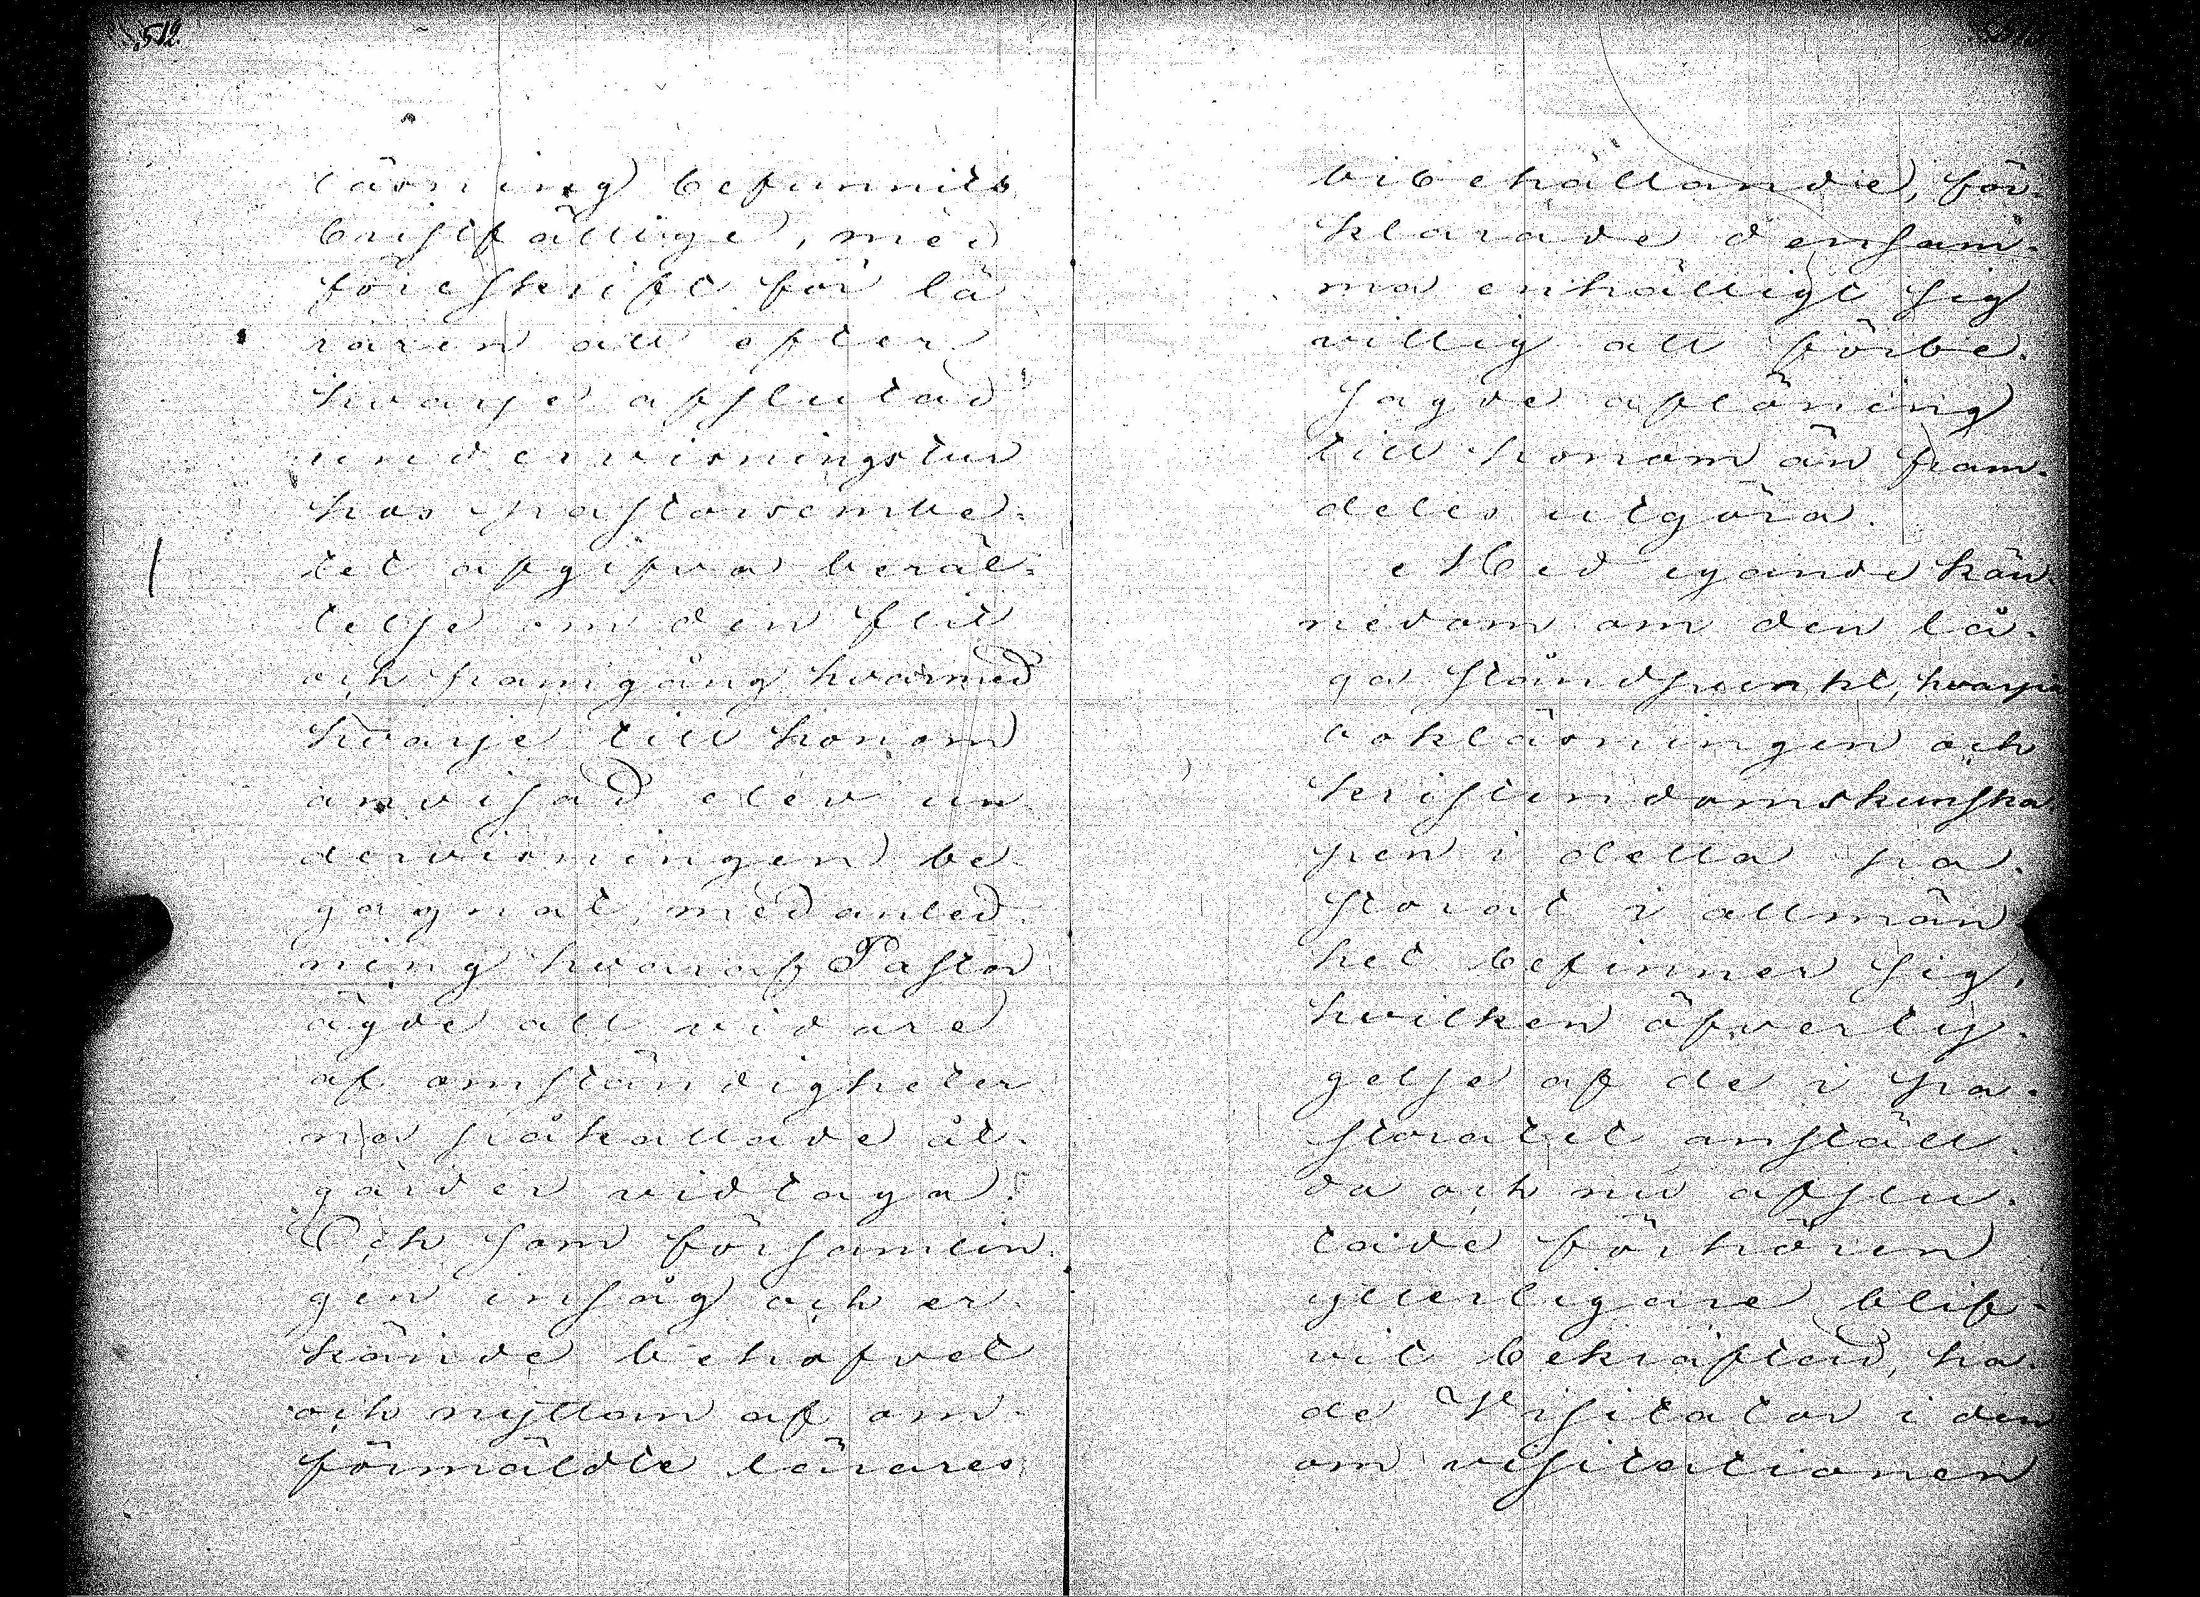 512.
läsning befunnits
bristfällige, med
föreskrift för lä
raren att efter
hvarje afslutad
undervisningstur
hos pastorsembe-
tet afgifva berät-
telse om den flit
och framgång hvarmed
hvarje till honom
anvisad elev un
dervisningen be
gagnat, med anled
ning hvaraf Pastor
ägde att vidare
af omständigheter
na påkallade åt-
gärder vidtaga.
Och som församlin
gen insåg och er
kände behofvet
och nyttan af om-
förmäldte lärares
bibehållande, för-
klarade densam-
ma enhälligt sig
villig att förbe-
sagde aflöning
till honom än fram-
deles utgöra.
Med egande kän
nedom om den lå-
ga ståndpunkt, hvarpå
bokläsningen och
kristendomskunska
pen i detta pa-
storat i allmän
het befinner sig,
hvilken öfverty-
gelse af de i pa-
storatet anställ
da och nu afslu-
tade förhören
ytterligare blif-
vit bekräftad, ha-
de Visitator i den
om visitationen